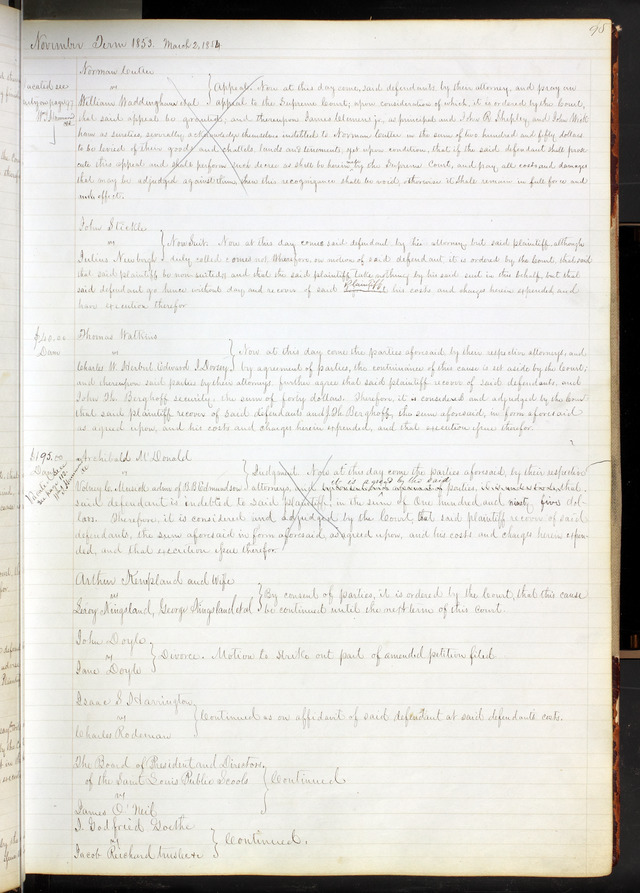 98
November Term 1853. March 2, 1854
Norman Cutter
vs
William Waddingham et al
Appeal. Now at this day come, said defendants, by their attorney, and pray an
appeal to the Supreme Court; upon consideration of which, it is ordered by the Court,
that said appeal be granted, and thereupon James Clemens jr, as principal, and John R Shepley, and John
ham as sureties severally acknowledge themselves indebted to Norman Cutter in the sum of two hundred and fifty dollars
to be levied of their goods and chattels, lands and tenements; yet upon condition, that if the said defendant shall prose
cute this appeal and shall perform such decree as shall be herein by the Supreme Court, and pay, all costs and damages
that may be adjudged against them, then this recognizance shall be void, otherwise it shall remain in full force and
effect.
John Steettle
vs
Julius Newbugh
Non Suit. Now at this day comes said defendant by his attorney but said plaintiff although
duly called comes not. Wherefore, on motion of said defendant it is ordered by the Court, that said
that said plaintiff be non suited, and that the said plaintiff take nothing by his said suit in this behalf, but that
said defendant go hence without day and recover of said plaintiff his costs and charges herein expended, and
have execution therefor
$40.00
Dam
Thomas Watkins
vs
Charles W. Herbert Edward I. Dorsey
Now at this day come the parties aforesaid by their respective attorneys, and
by agreement of parties, the continuance of this cause is set aside by the Court;
and thereupon said parties by their attorneys further agree that said plaintiff recover of said defendants, and
John Th. Berghoff security, the sum of forty dollars. Therefore, it is considered and adjudged by the Court
that said plaintiff recover of said defendants and Th. Berghoff, the sum aforesaid, in form aforesaid
as agreed upon, and his costs and charges herein expended, and that execution issue therefor.
$195.00
Archibald McDonald
vs
Volney C. Musick admr of B. B. Edmundson
Judgment. Now at this day come the parties aforesaid, by their respective
attorneys, and it is agreed by the said parties, that
said defendant is indebted to said plaintiff, in the sum of One hundred and ninety five dol-
lars. Therefore, it is considered and adjudged by the Court, that said plaintiff recover of said
defendants, the sum aforesaid in form aforesaid, as agreed upon, and his costs and charges herein expen-
ded, and that execution issue therefor.
Arthur Kempland and Wife
vs
Leroy Kingsland, George Kingsland et al
By consent of parties, it is ordered by the Court, that this cause
be continued until the next term of this Court.
John Doyle
vs
Jane Doyle
Divorce. Motion to strike out part of amended petition filed
Isaac S. Harrington
vs
Charles Rodeman
Continued as on affidavit of said defendant at said defendants costs.
The Board of President and Directors
of the Saint Louis Public Scools
vs
James O'Neil
Continued
J. Godfried Goethe
vs
Jacob Reichard trustee &c
Continued.